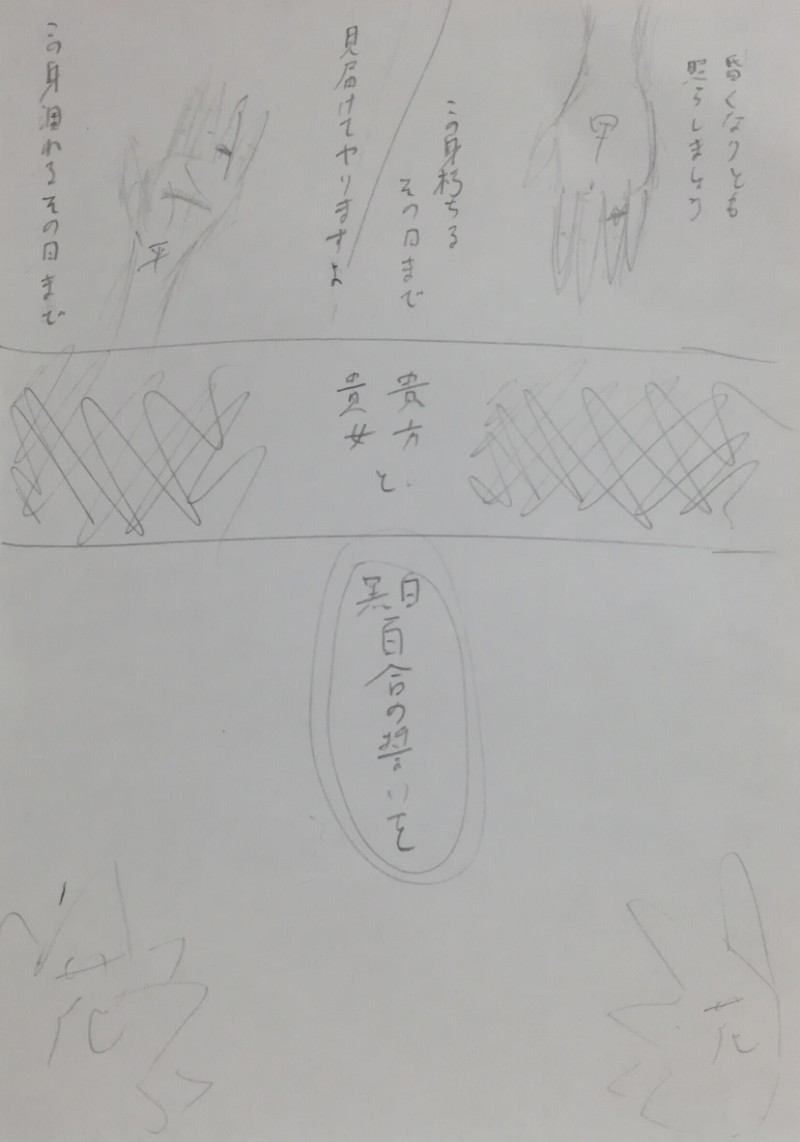 昏くなりとも
照らしましょう
甲
この身朽ちる
その日まで
見届けてやりますよ
平
この身凋れるその日まで
貴方
貴女
と
白
黒
百合の誓いを
花
花